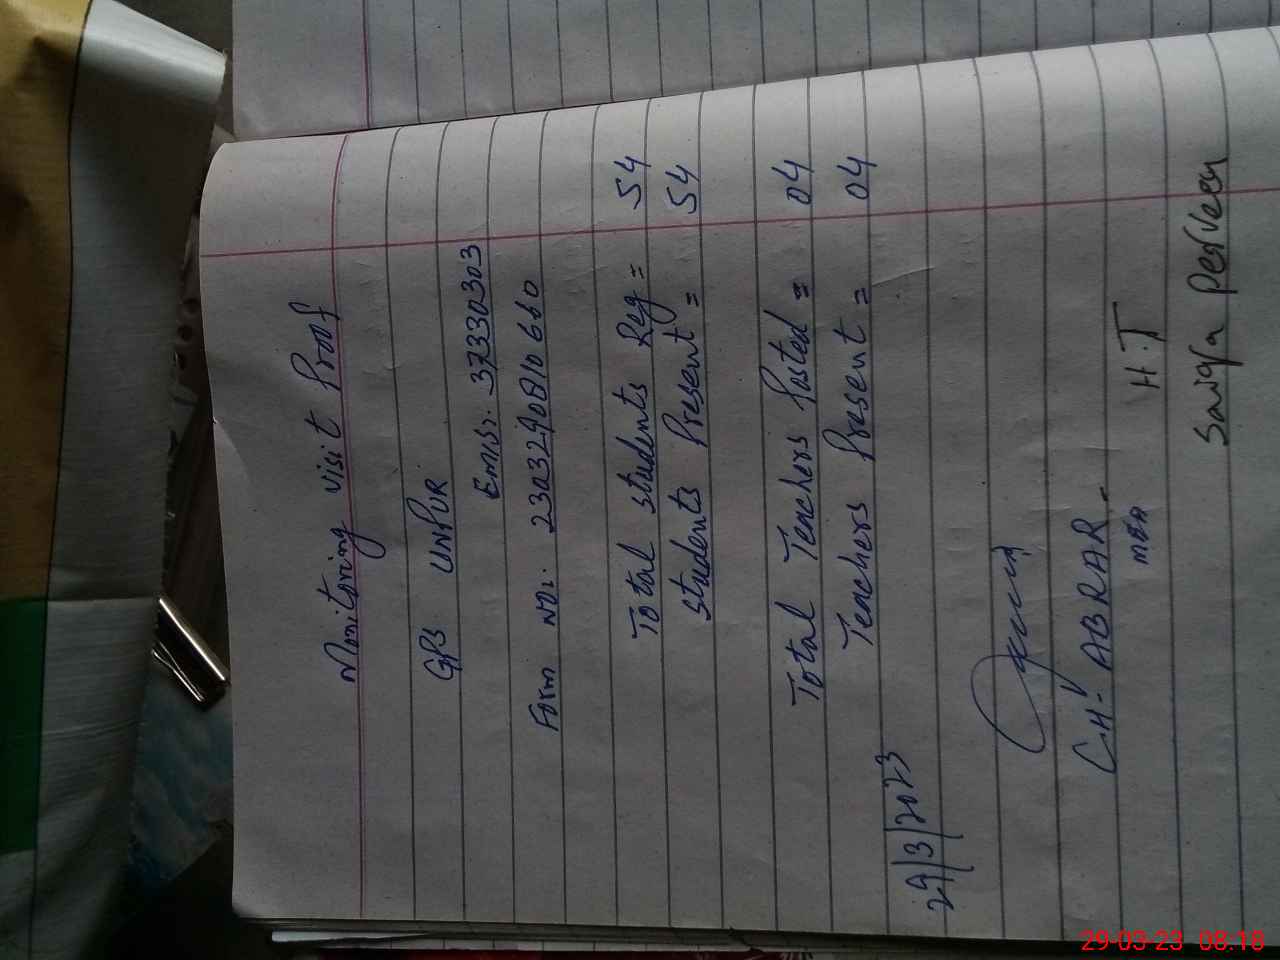 Monitoring visit Proof
GPS UNPUR
Emis: 37330303
Form No:. 2303290810660
Total students Reg = 54
Students Present = 54
Total Teachers Posted = 04
Teachers Present = 04
29/3/2023
CH- ABRAR-
MEA
H.T
Saiqa Perveen
29-03-23 08:18